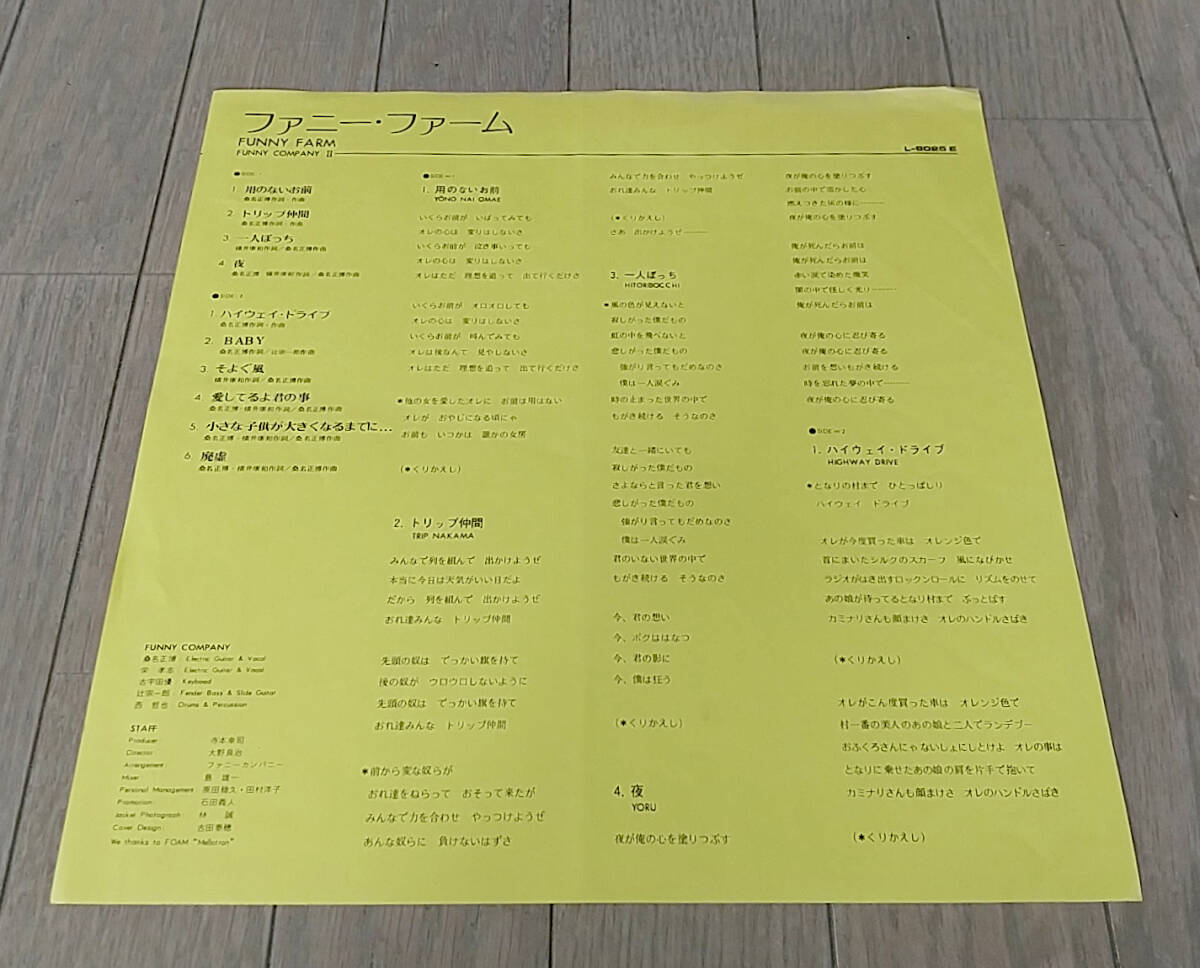 ファニー・ファーム
FUNNY FARM
FUNNY COMPANY II
L-8025E
●SIDE・1
1. 用のないお前
桑名正博作詞・作曲
2. トリップ仲間
桑名正博作詞・作曲
3. 一人ぼっち
横井康和作詞/桑名正博作曲
4. 夜
桑名正博・横井康和作詞/桑名正博作曲
●SIDE・2
1. ハイウェイ・ドライブ
桑名正博作詞・作曲
2. BABY
桑名正博作詞/辻宗一郎作曲
3. そよぐ風
横井康和作詞/桑名正博作曲
4. 愛してるよ君の事
桑名正博・横井康和作詞/桑名正博作曲
5. 小さな子供が大きくなるまでに...
桑名正博・横井康和作詞/桑名正博作曲
6. 廃虚
桑名正博・横井康和作詞/桑名正博作曲
FUNNY COMPANY
桑名正博: Electric Guitar & Vocal
栄 孝志: Electric Guitar & Vocal
古宇田優: Keyboad
辻宗一郎: Fender Bass & Slide Guitar
西 哲也: Drums & Percussion
STAFF
Producer: 寺本幸司
Director: 大野良治
Arrangement: ファニーカンパニー
Mixer: 島 雄一
Personal Management: 原田稔久・田村洋子
Promotion: 石田義人
Jacket Photograph: 林 誠
Cover Design: 古田泰穂
We thanks to FOAM "Mellotron"
●SIDE=1
1. 用のないお前
YŌNO NAI OMAE
いくらお前が いばってみても
オレの心は 変りはしないさ
いくらお前が 泣き事いっても
オレの心は 変りはしないさ
オレはただ 理想を追って 出て行くだけさ
いくらお前が オロオロしても
オレの心は 変りはしないさ
いくらお前が 叫んでみても
オレは後なんて 見やしないさ
オレはただ 理想を追って 出て行くだけさ
*他の女を愛したオレに お前は用はない
オレが おやじになる頃にゃ
お前も いつかは 誰かの女房
(*くりかえし)
2. トリップ仲間
TRIP NAKAMA
みんなで列を組んで 出かけようぜ
本当に今日は天気がいい日だよ
だから 列を組んで 出かけようぜ
おれ達みんな トリップ仲間
先頭の奴は でっかい旗を持て
後の奴が ウロウロしないように
先頭の奴は でっかい旗を持て
おれ達みんな トリップ仲間
*前から変な奴らが
おれ達をねらって おそって来たが
みんなで力を合わせ やっつけようぜ
あんな奴らに 負けないはずさ
みんなで力を合わせ やっつけようぜ
おれ達みんな トリップ仲間
(*くりかえし)
さあ 出かけようぜ———
3. 一人ぼっち
HITORIBOCCHI
*風の色が見えないと
寂しがった僕だもの
虹の中を飛べないと
悲しがった僕だもの
強がり言ってもだめなのさ
僕は一人涙ぐみ
時の止まった世界の中で
もがき続ける そうなのさ
友達と一緒にいても
寂しがった僕だもの
さよならと言った君を想い
悲しがった僕だもの
強がり言ってもだめなのさ
僕は一人涙ぐみ
君のいない世界の中で
もがき続ける そうなのさ
今、君の想い
今、ボクははなつ
今、君の影に
今、僕は狂う
(*くりかえし)
4. 夜
YORU
夜が俺の心を塗りつぶす
夜が俺の心を塗りつぶす
お前の中で溶かした心
燃えつきた灰の様に———
夜が俺の心を塗りつぶす
俺が死んだらお前は
俺が死んだらお前は
赤い涙で染めた微笑
闇の中で怪しく光り———
俺が死んだらお前は
夜が俺の心に忍び寄る
夜が俺の心に忍び寄る
お前を想いもがき続ける
時を忘れた夢の中で———
夜が俺の心に忍び寄る
●SIDE=2
1. ハイウェイ・ドライブ
HIGHWAY DRIVE
*となりの村まで ひとっぱしり
ハイウェイ ドライブ
オレが今度買った車は オレンジ色で
首にまいたシルクのスカーフ 風になびかせ
ラジオがはき出すロックンロールに リズムをのせて
あの娘が待ってるとなり村まで ぶっとばす
カミナリさんも顔まけさ オレのハンドルさばき
(*くりかえし)
オレがこん度買った車は オレンジ色で
村一番の美人のあの娘と二人でランデブー
おふくろさんにゃ ないしょにしとけよ オレの事は
となりに乗せたあの娘の肩を片手で抱いて
カミナリさんも顔まけさ オレのハンドルさばき
(*くりかえし)